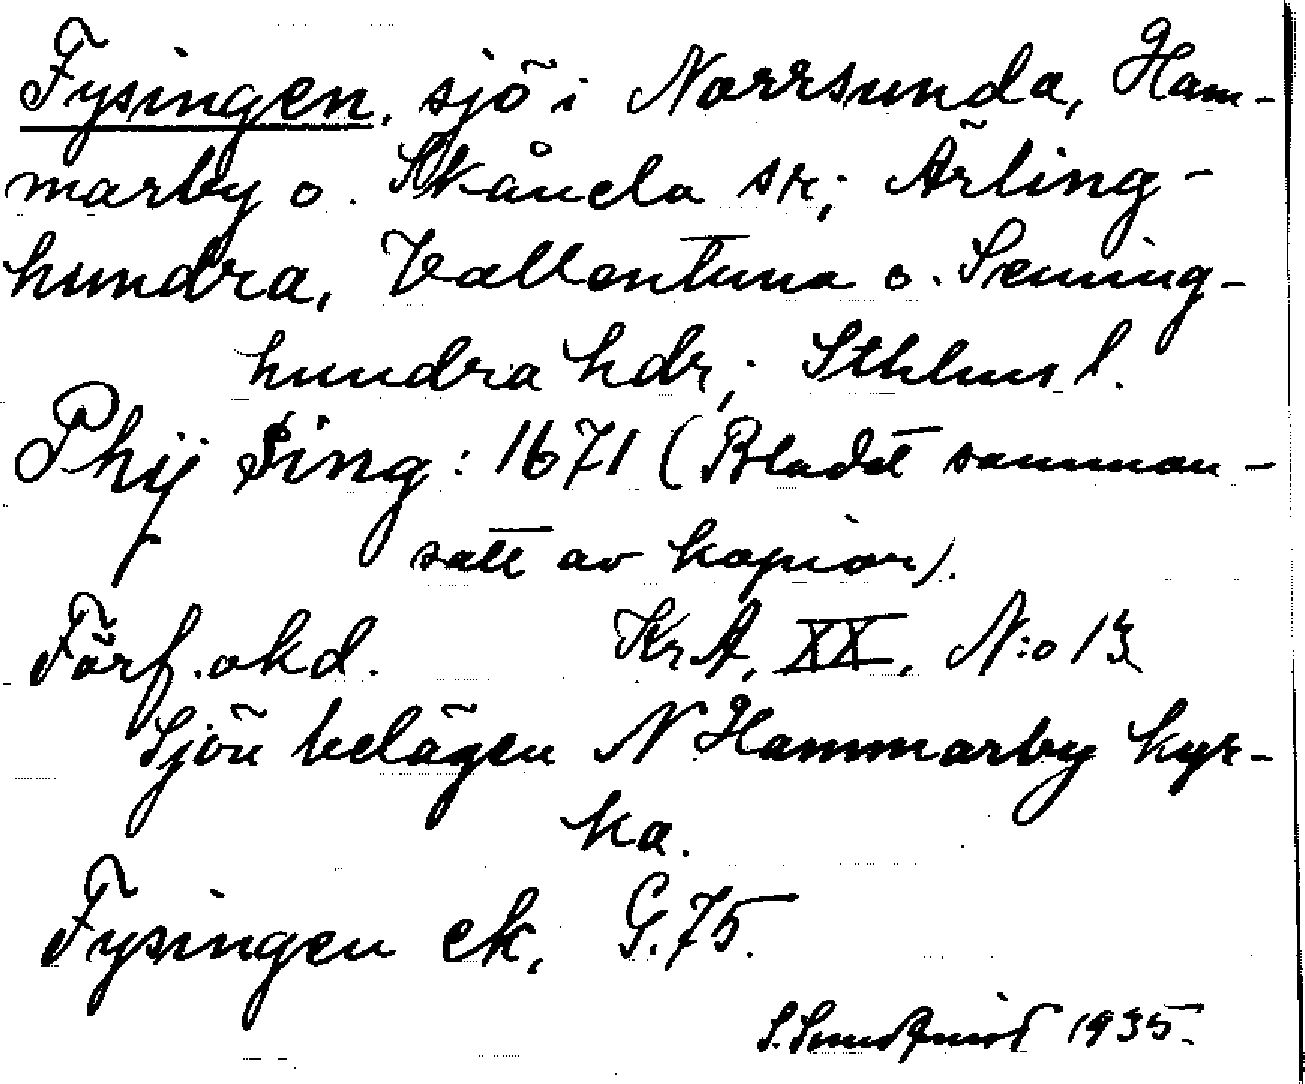 Fysingen, sjö i Norrsunda, Ham-
marby o. Skånela snr; Ärling-
hundra, Vallentuna o. Seming-
hundra hdr; Sthlms l.
Phij Sing: 1671 (Bladet samman-
satt av kopior).
Förf. okd. KrA, XX, N:o 13
Sjön belägen N Hammarby kyr-
ka.
Fysingen ek, G. 75.
S. Sundqvist 1935.